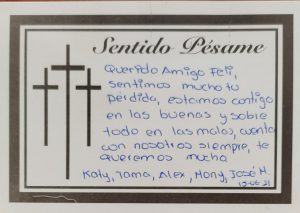 Sentido Pésame
Querido Amigo Feli,
sentimos mucho tu
pérdida, estamos contigo
en las buenas y sobre
todo en las malas, cuenta
con nosotros siempre, te
queremos mucho
Katy, Tama, Alex, Mony, José M.